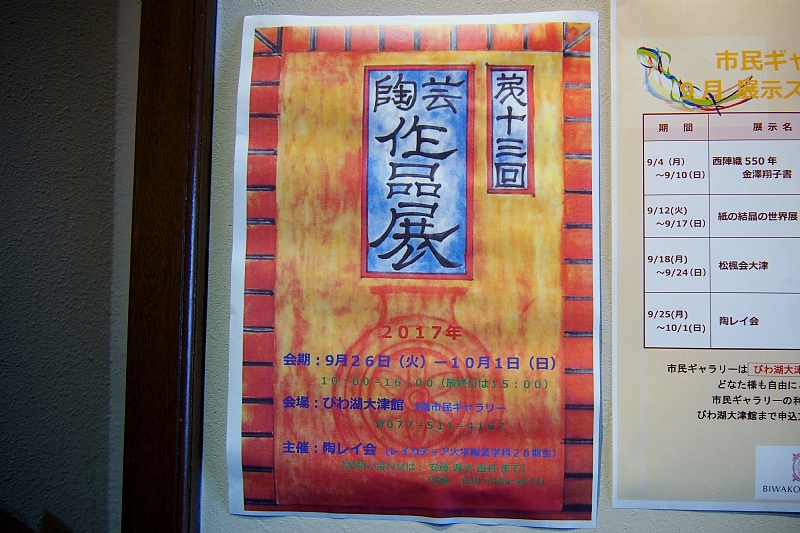 第十三回
陶芸
作品展
2017年
会期：9月26日（火）―10月1日（日）
10:00-16:00（最終日は15:00）
会場：びわ湖大津館 市民ギャラリー
077-511-4187
主催：陶レイ会（レイカディア大学陶芸学科26期生）
市民ギャ
9月 展示ス
期 間 展示名
9/4（月）～9/10(日) 西陣織550年 金澤翔子書
9/12(火)～9/17(日) 紙の結晶の世界展
9/18(月)～9/24(日) 松楓会大津
9/25(月)～10/1(日) 陶レイ会
市民ギャラリーは びわ湖大津
どなた様も自由に
市民ギャラリーの利
びわ湖大津館まで申込
BIWAKO